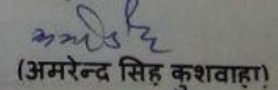 (अमरेन्द्र सिंह कुशवाहा)